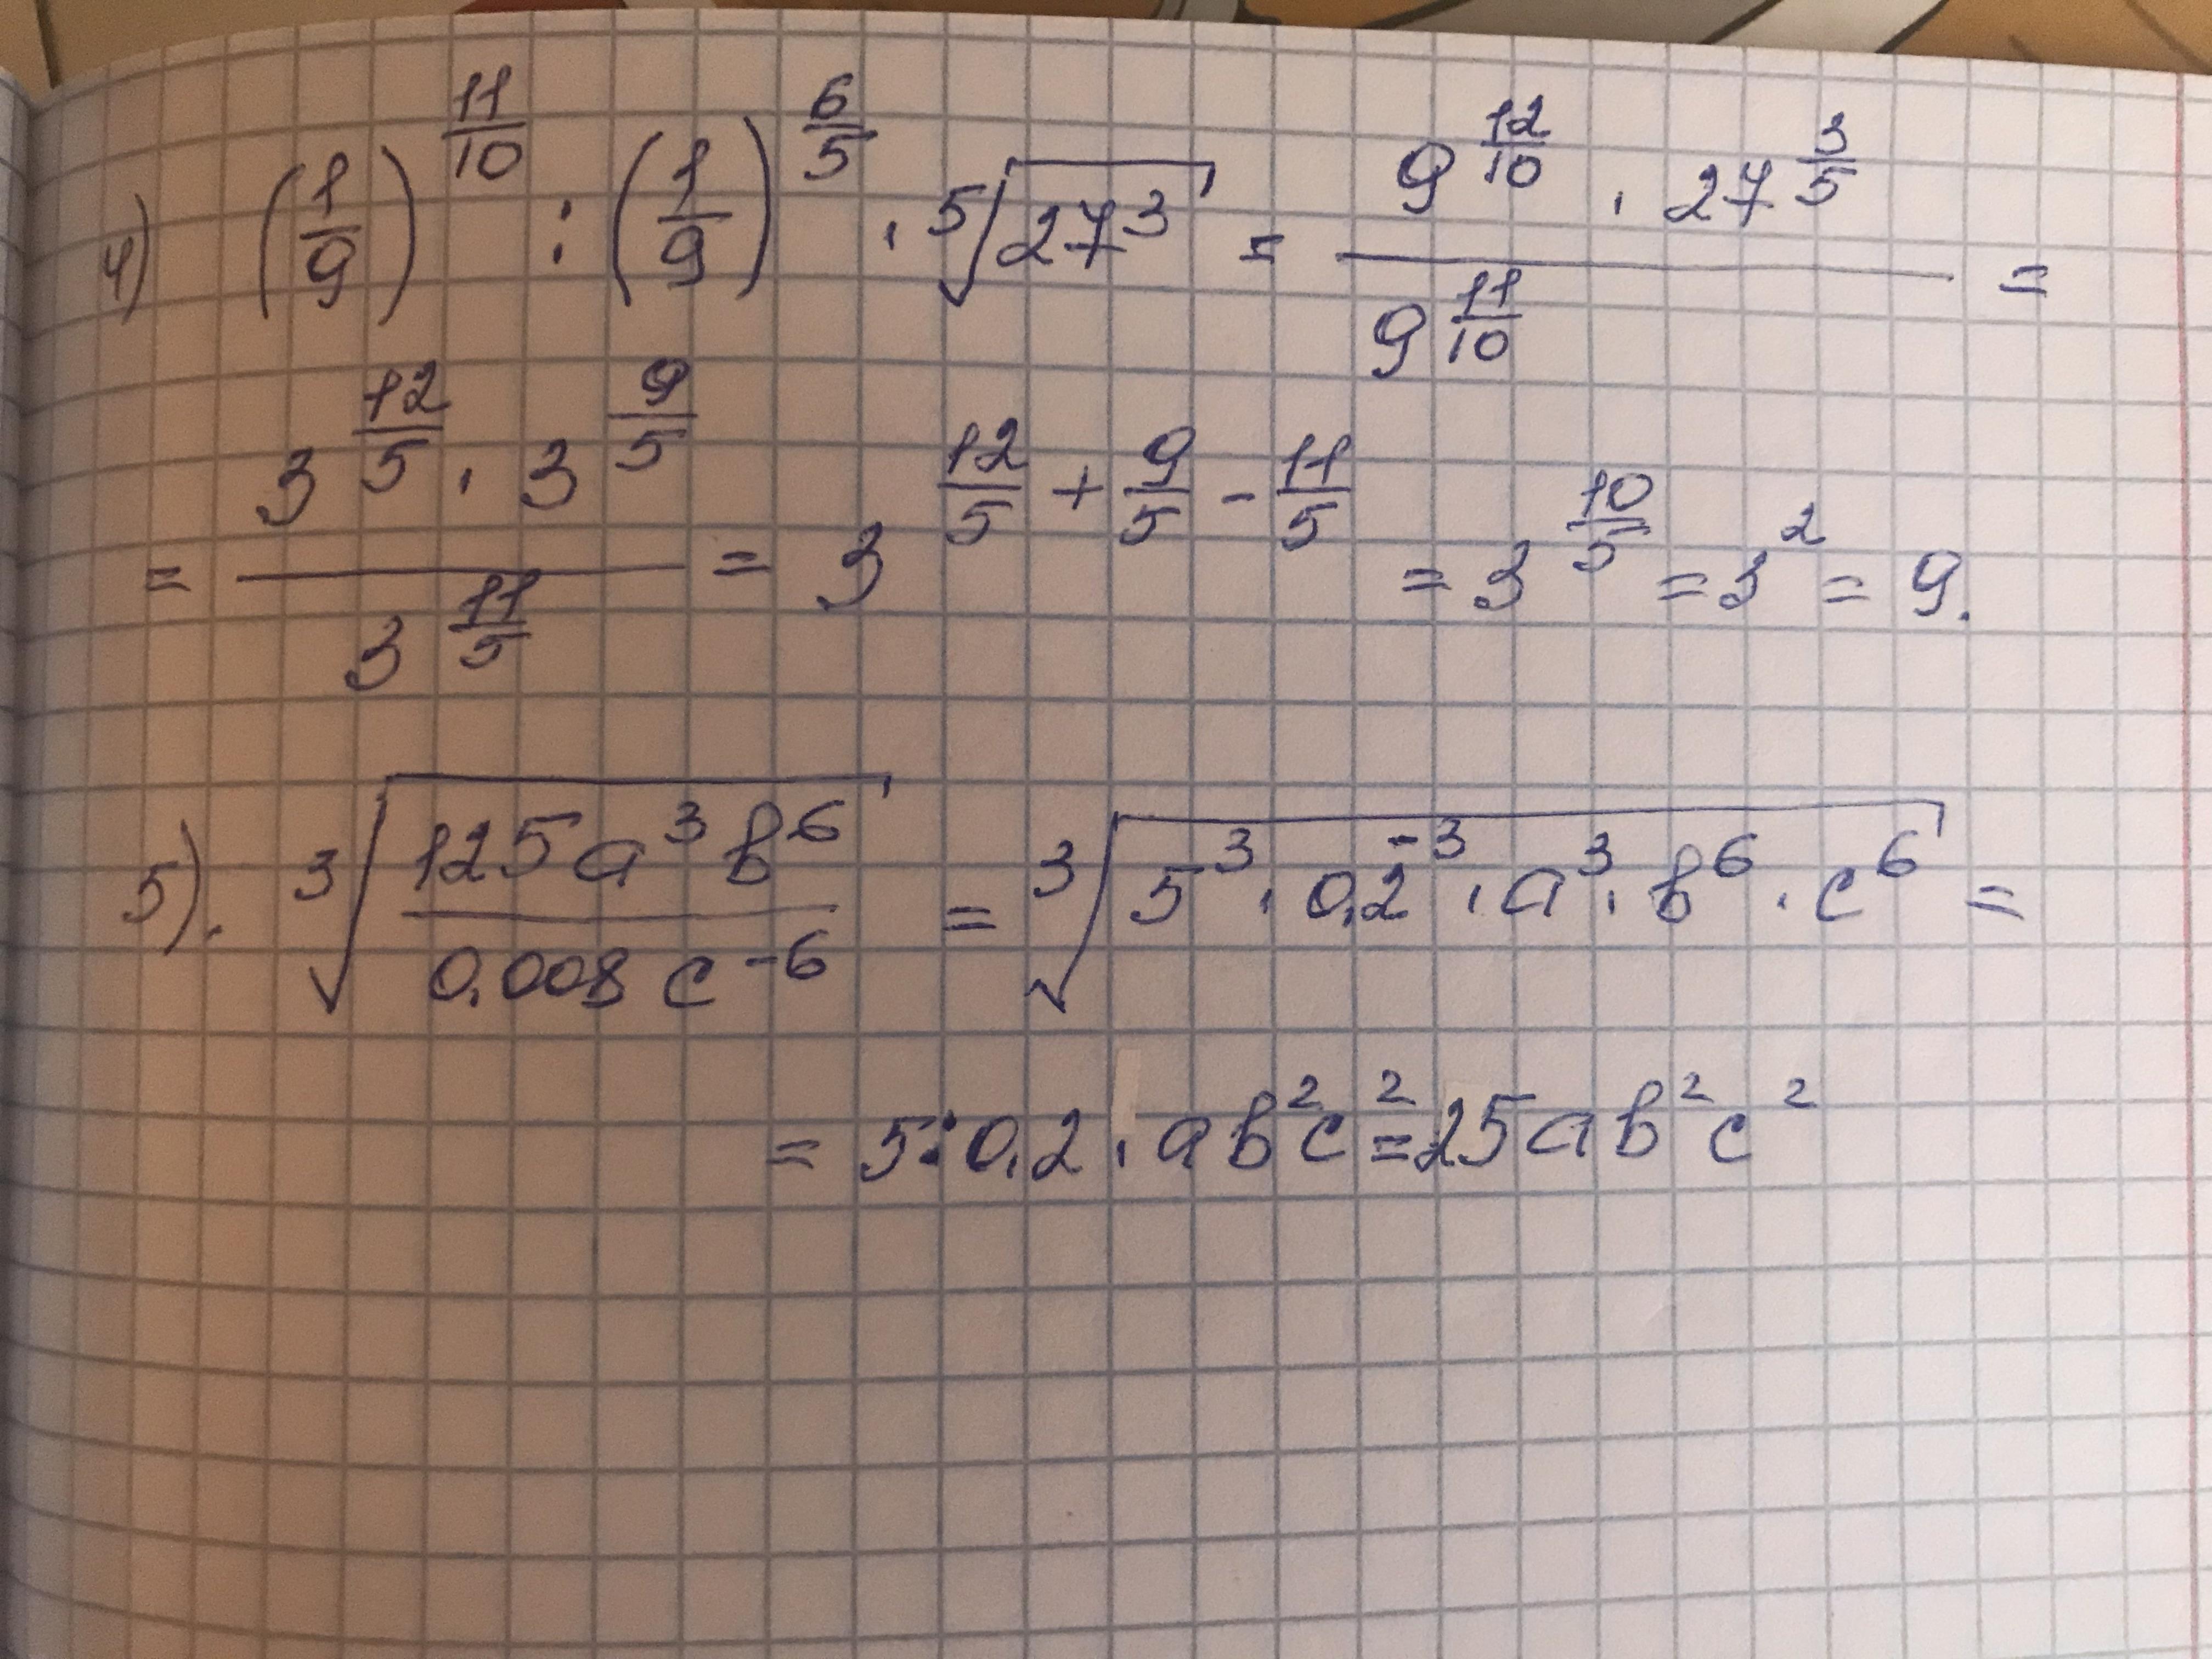 4) (1/9)^(11/10) : (1/9)^(6/5) · ⁵√(27³) = (9^(12/10) · 27^(3/5)) / 9^(11/10) =
= (3^(12/5) · 3^(9/5)) / 3^(11/5) = 3^(12/5 + 9/5 - 11/5) = 3^(10/5) = 3² = 9.
5). ³√(125a³b⁶ / 0,008c⁻⁶) = ³√(5³ · 0,2⁻³ · a³ · b⁶ · c⁶) =
= 5 : 0,2 · ab²c² = 25ab²c²